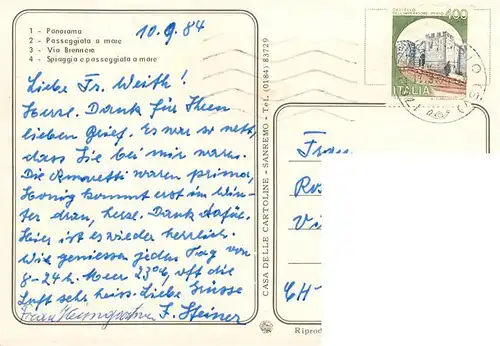 1 - Panorama
2 - Passeggiata a mare
3 - Via Brennero
4 - Spiaggia e passeggiata a mare
10.9.84
Liebe Fr. Weith!
Herzl. Dank für Ihren
lieben Brief. Es war so nett,
dass Sie bei mir waren.
Die Amaretti waren prima,
Honig kommt erst im Win-
ter dran, herzl. Dank dafür.
Hier ist es wieder herrlich.
Wir geniessen jeden Tag von
8-24h. Meer 23°C, oft die
Luft sehr heiss. Liebe Grüsse
Frau F. Steiner
CASA DELLE CARTOLINE - SANREMO - Tel. (0184) 83729
CASTELLO
400
ITALIA
Frau
Ro
Vi
CH-
Riprod